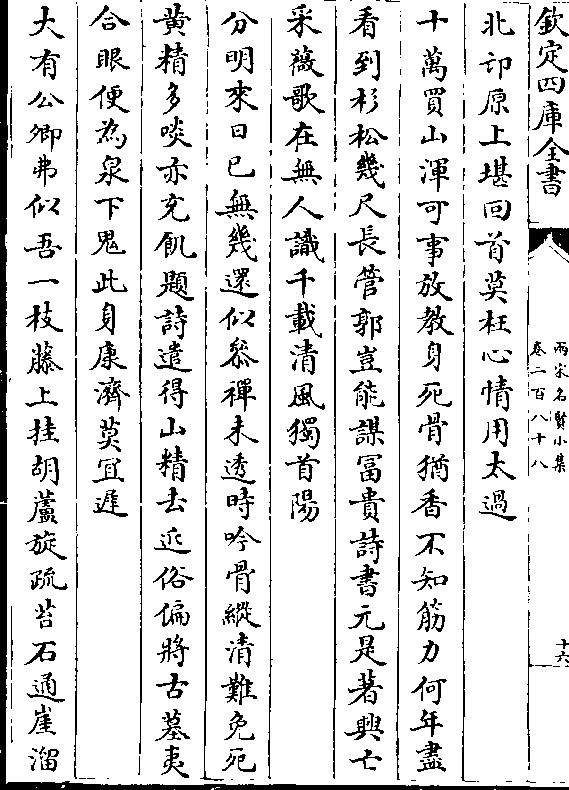 欽定四庫全書
兩宋名賢小集
卷二百八十八
十六
北邙原上堪回首莫枉心情用太過
十萬買山渾可事放教身死骨猶香不知筋力何年盡
看到杉松幾尺長管郭豈能謀冨貴詩書元是著興亡
采薇歌在無人識千載清風獨首陽
分明來日已無幾還似叅禪未透時吟骨縱清難免死
黄精多啖亦充飢題詩遣得山精去近俗偏將古墓夷
合眼便為泉下鬼此身康濟莫宜遲
大有公卿弗似吾一枝藤上挂胡蘆旋疏苔石通崖溜